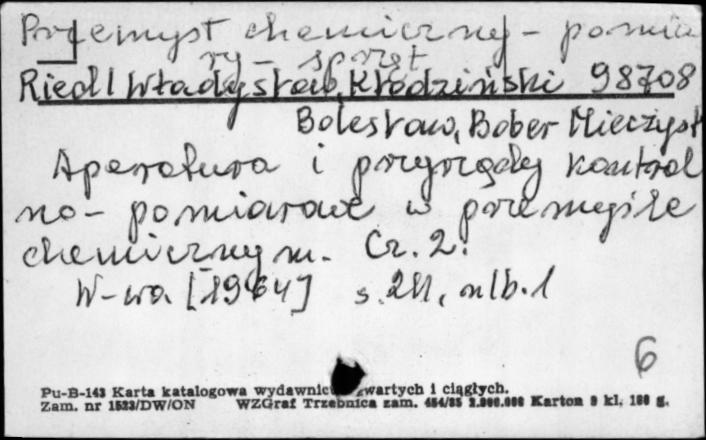 Przemysł chemiczny - pomia
ry - sprzęt
Riedl Władysław, Kłodziński 98708
Bolesław, Bober Mieczysł
Aparatura i przyrządy kontrol
no - pomiarowe w przemyśle
chemicznym. Cz. 2.
W-wa [1964] s. 211, nlb. 1
6
Pu-B-143 Karta katalogowa wydawnic wartych i ciągłych.
Zam. nr 1523/DW/ON WZGraf Trzebnica zam. 454/85 2.000.000 Karton 9 kl. 180 g.